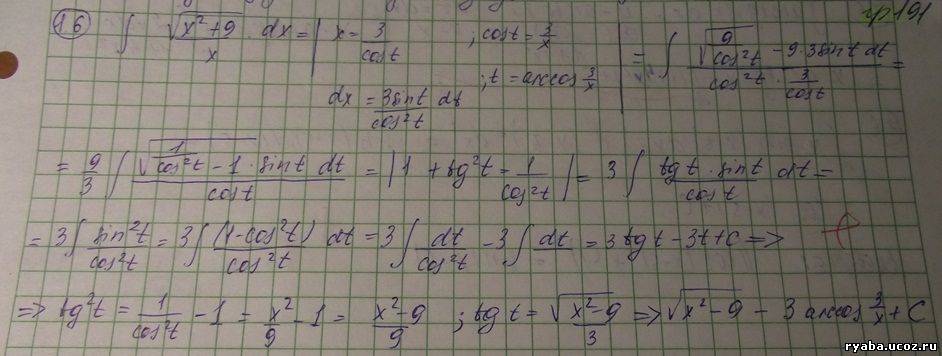 гр 191
16) ∫ √(x²+9)/x · dx = | x = 3/cost ; cost = 3/x | = ∫ √(9/cos²t − 9) · 3sint dt / (cos²t · 3/cost) =
dx = 3sint dt/cos²t ; t = arccos 3/x
= 9/3 ∫ √(1/cos²t − 1) · sint dt / cost = | 1 + tg²t = 1/cos²t | = 3 ∫ tgt · sint / cost dt =
= 3∫ sin²t/cos²t = 3∫ (1-cos²t)/cos²t dt = 3∫ dt/cos²t − 3∫ dt = 3 tgt − 3t + C =>
=> tg²t = 1/cos²t − 1 = x²/9 − 1 = (x²−9)/9 ; tgt = √(x²−9)/3 => √(x²−9) − 3 arccos 3/x + C
ryaba.ucoz.ru